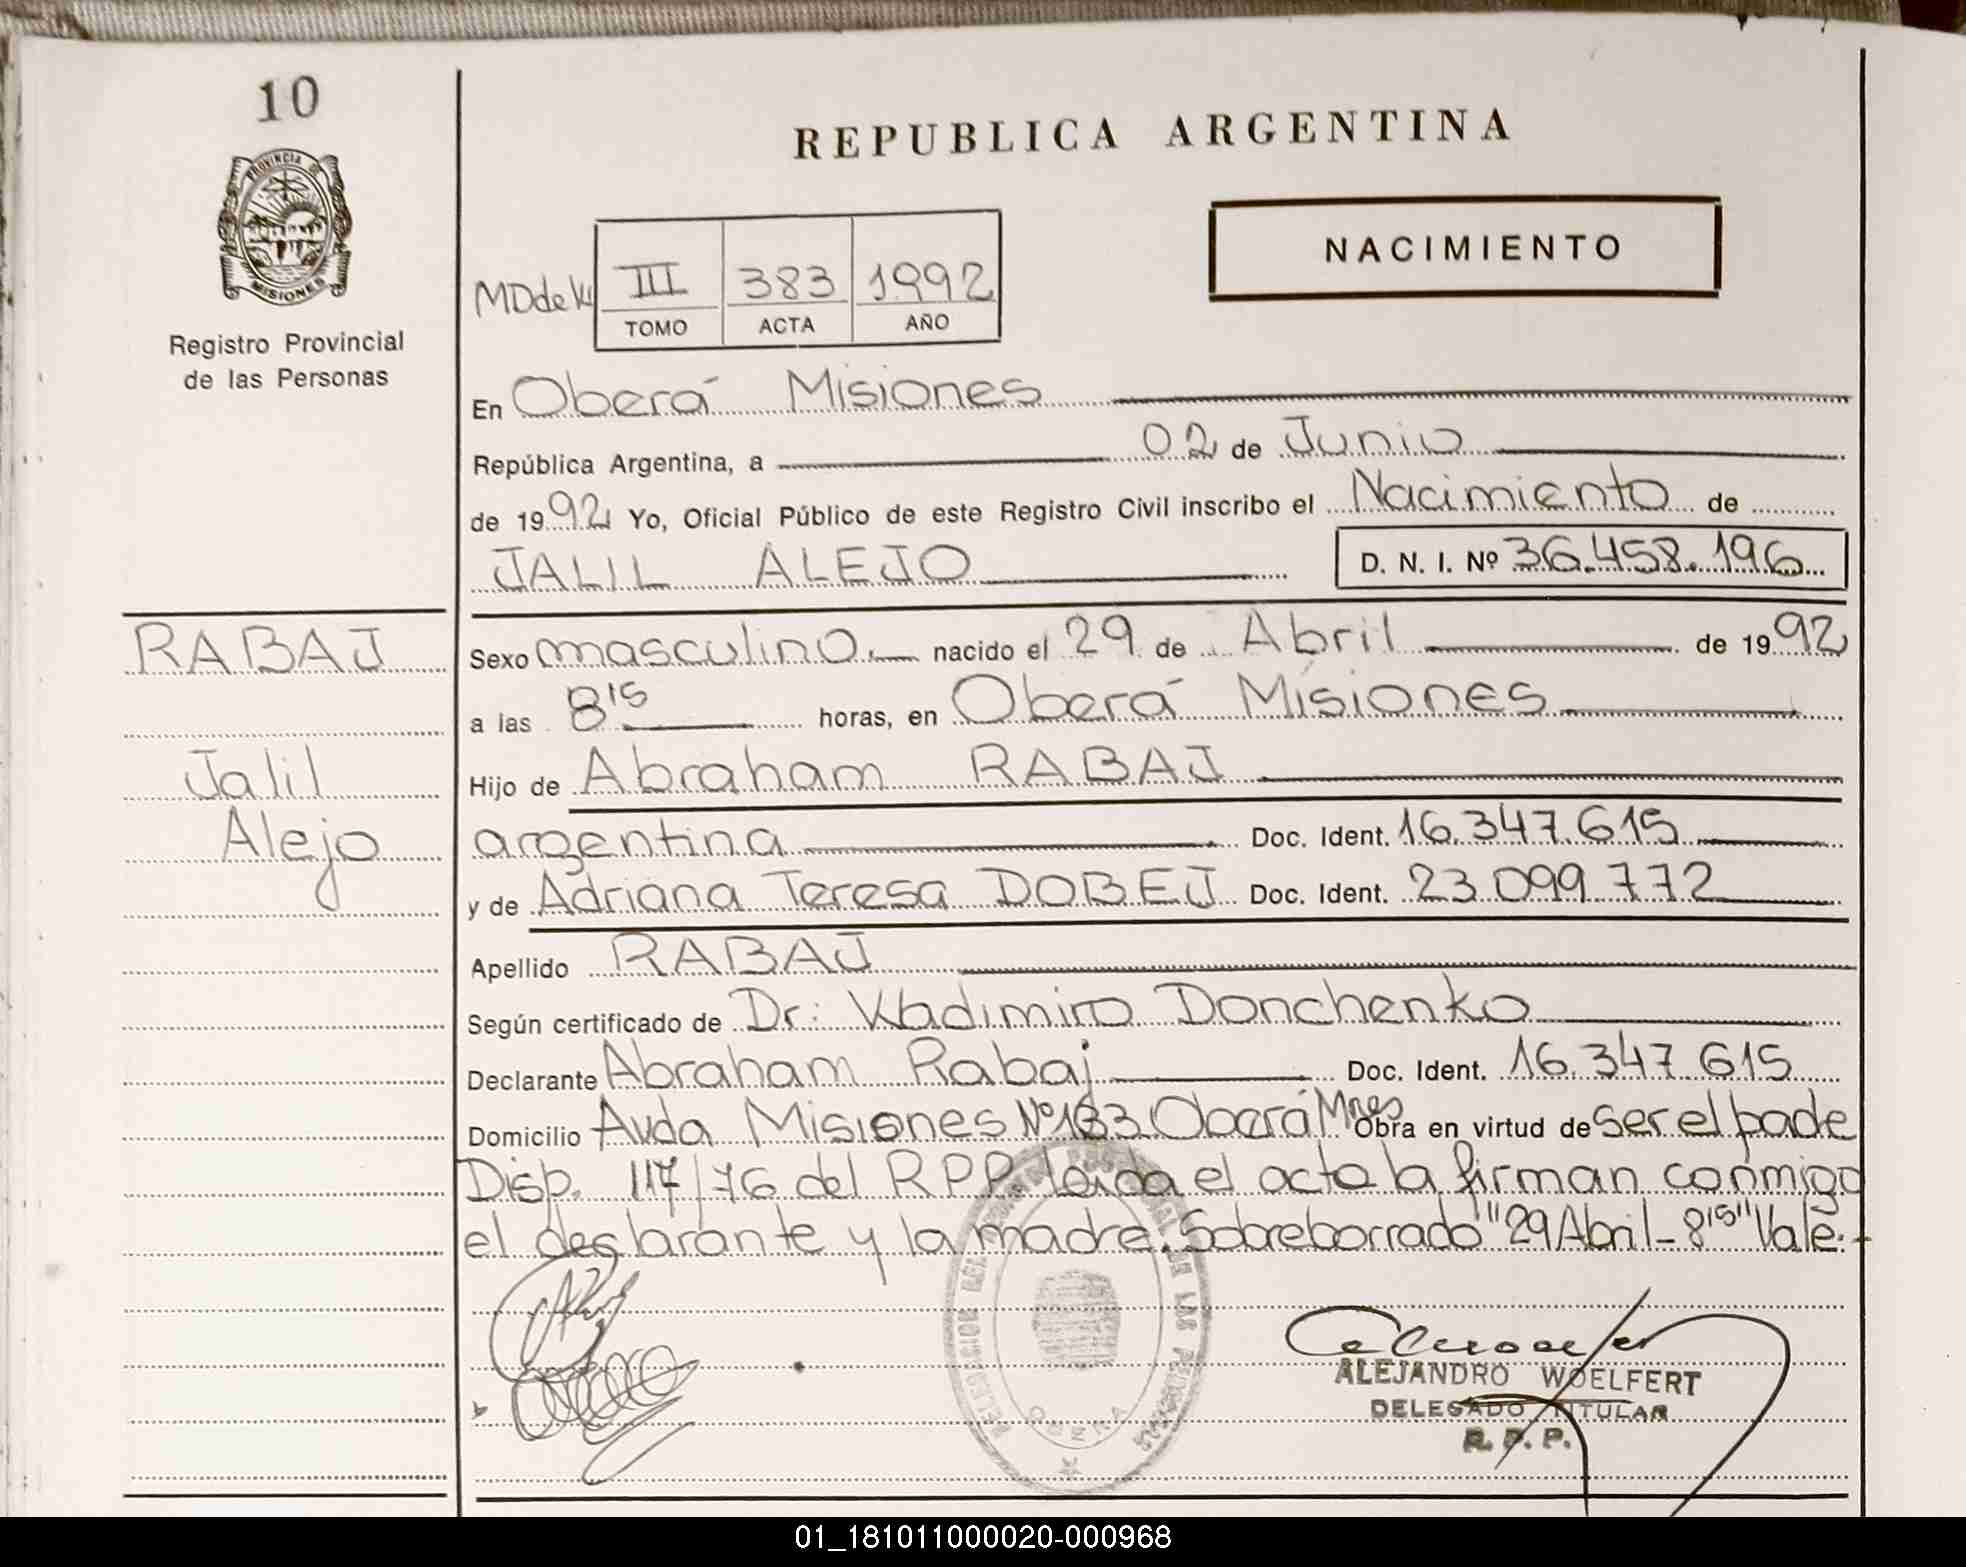 10
REPUBLICA ARGENTINA
PROVINCIA DE
MISIONES
NACIMIENTO
III 383 1992
TOMO ACTA AÑO
Registro Provincial
de las Personas
En Oberá Misiones
República Argentina, a 02 de Junio
de 1992 Yo, Oficial Público de este Registro Civil inscribo el Nacimiento de
JALIL ALEJO D. N. I. Nº 36.458.196
RABAJ
Sexo masculino nacido el 29 de Abril de 1992
a las 8'15 horas, en Oberá Misiones
Jalil
Hijo de Abraham RABAJ
Alejo
argentina Doc. Ident. 16.347.615
y de Adriana Teresa DOBEJ Doc. Ident. 23.099.772
Apellido RABAJ
Según certificado de Dr: Vladimiro Donchenko
Declarante Abraham Rabaj Doc. Ident. 16.347.615
Domicilio Avda Misiones Nº 183 Oberá Mnes Obra en virtud de ser el pade
Disp. 117/76 del RPP leida el acta la firman conmigo
el declarante y la madre. Sobreborrado "29 Abril - 8'15" Vale.-
DELEGACION DEL REGISTRO PROVINCIAL DE LAS PERSONAS
OBERA
ALEJANDRO WOELFERT
DELEGADO TITULAR
R. P. P.
01_181011000020-000968